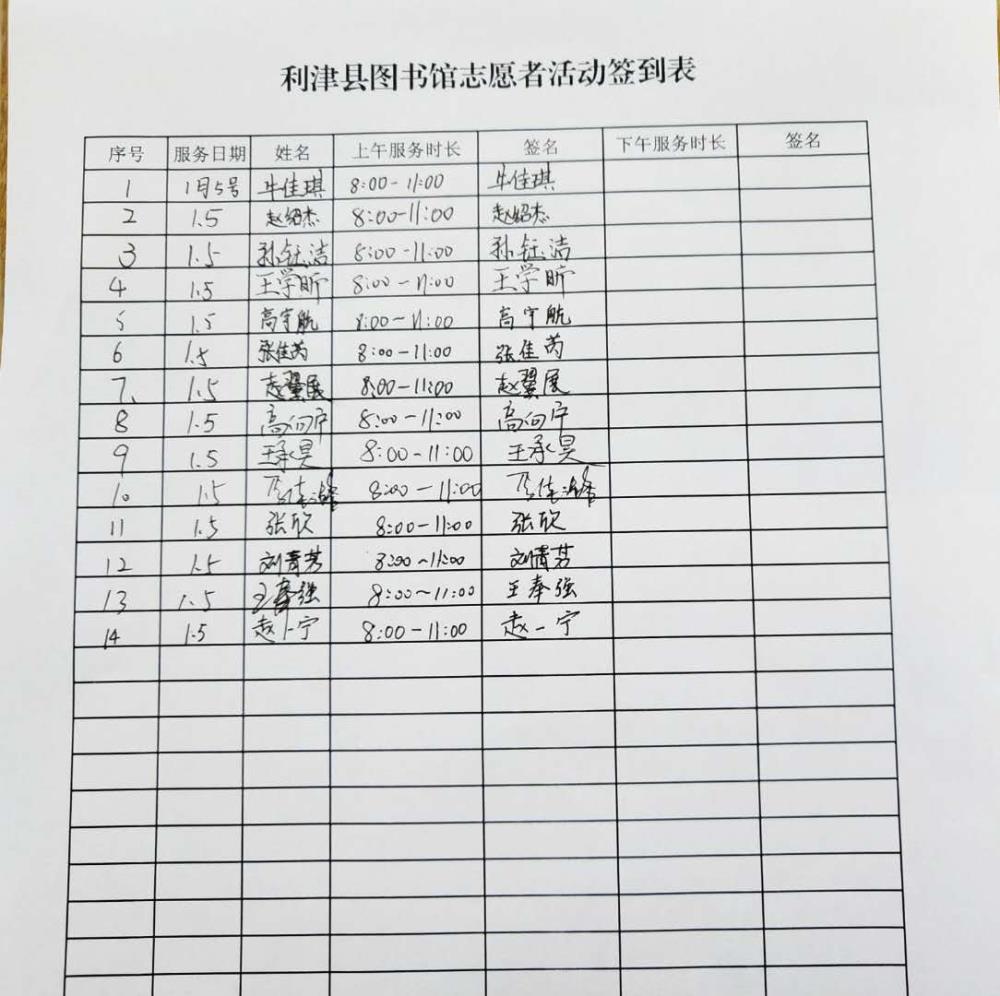 利津县图书馆志愿者活动签到表
序号 服务日期 姓名 上午服务时长 签名 下午服务时长 签名
1 1月5号 牛佳琪 8:00-11:00 牛佳琪
2 1.5 赵绍杰 8:00-11:00 赵绍杰
3 1.5 孙钰洁 8:00-11:00 孙钰洁
4 1.5 王学昕 8:00-11:00 王学昕
5 1.5 高宇航 8:00-11:00 高宇航
6 1.5 张佳芮 8:00-11:00 张佳芮
7、 1.5 赵翼展 8:00-11:00 赵翼展
8 1.5 8:00-11:00
9 1.5 王承昊 8:00-11:00 王承昊
10 1.5 8:00-11:00
11 1.5 张欣 8:00-11:00 张欣
12 1.5 刘菁芳 8:00~11:00 刘菁芳
13 1.5 王奉强 8:00~11:00 王奉强
14 1.5 赵一宁 8:00-11:00 赵一宁